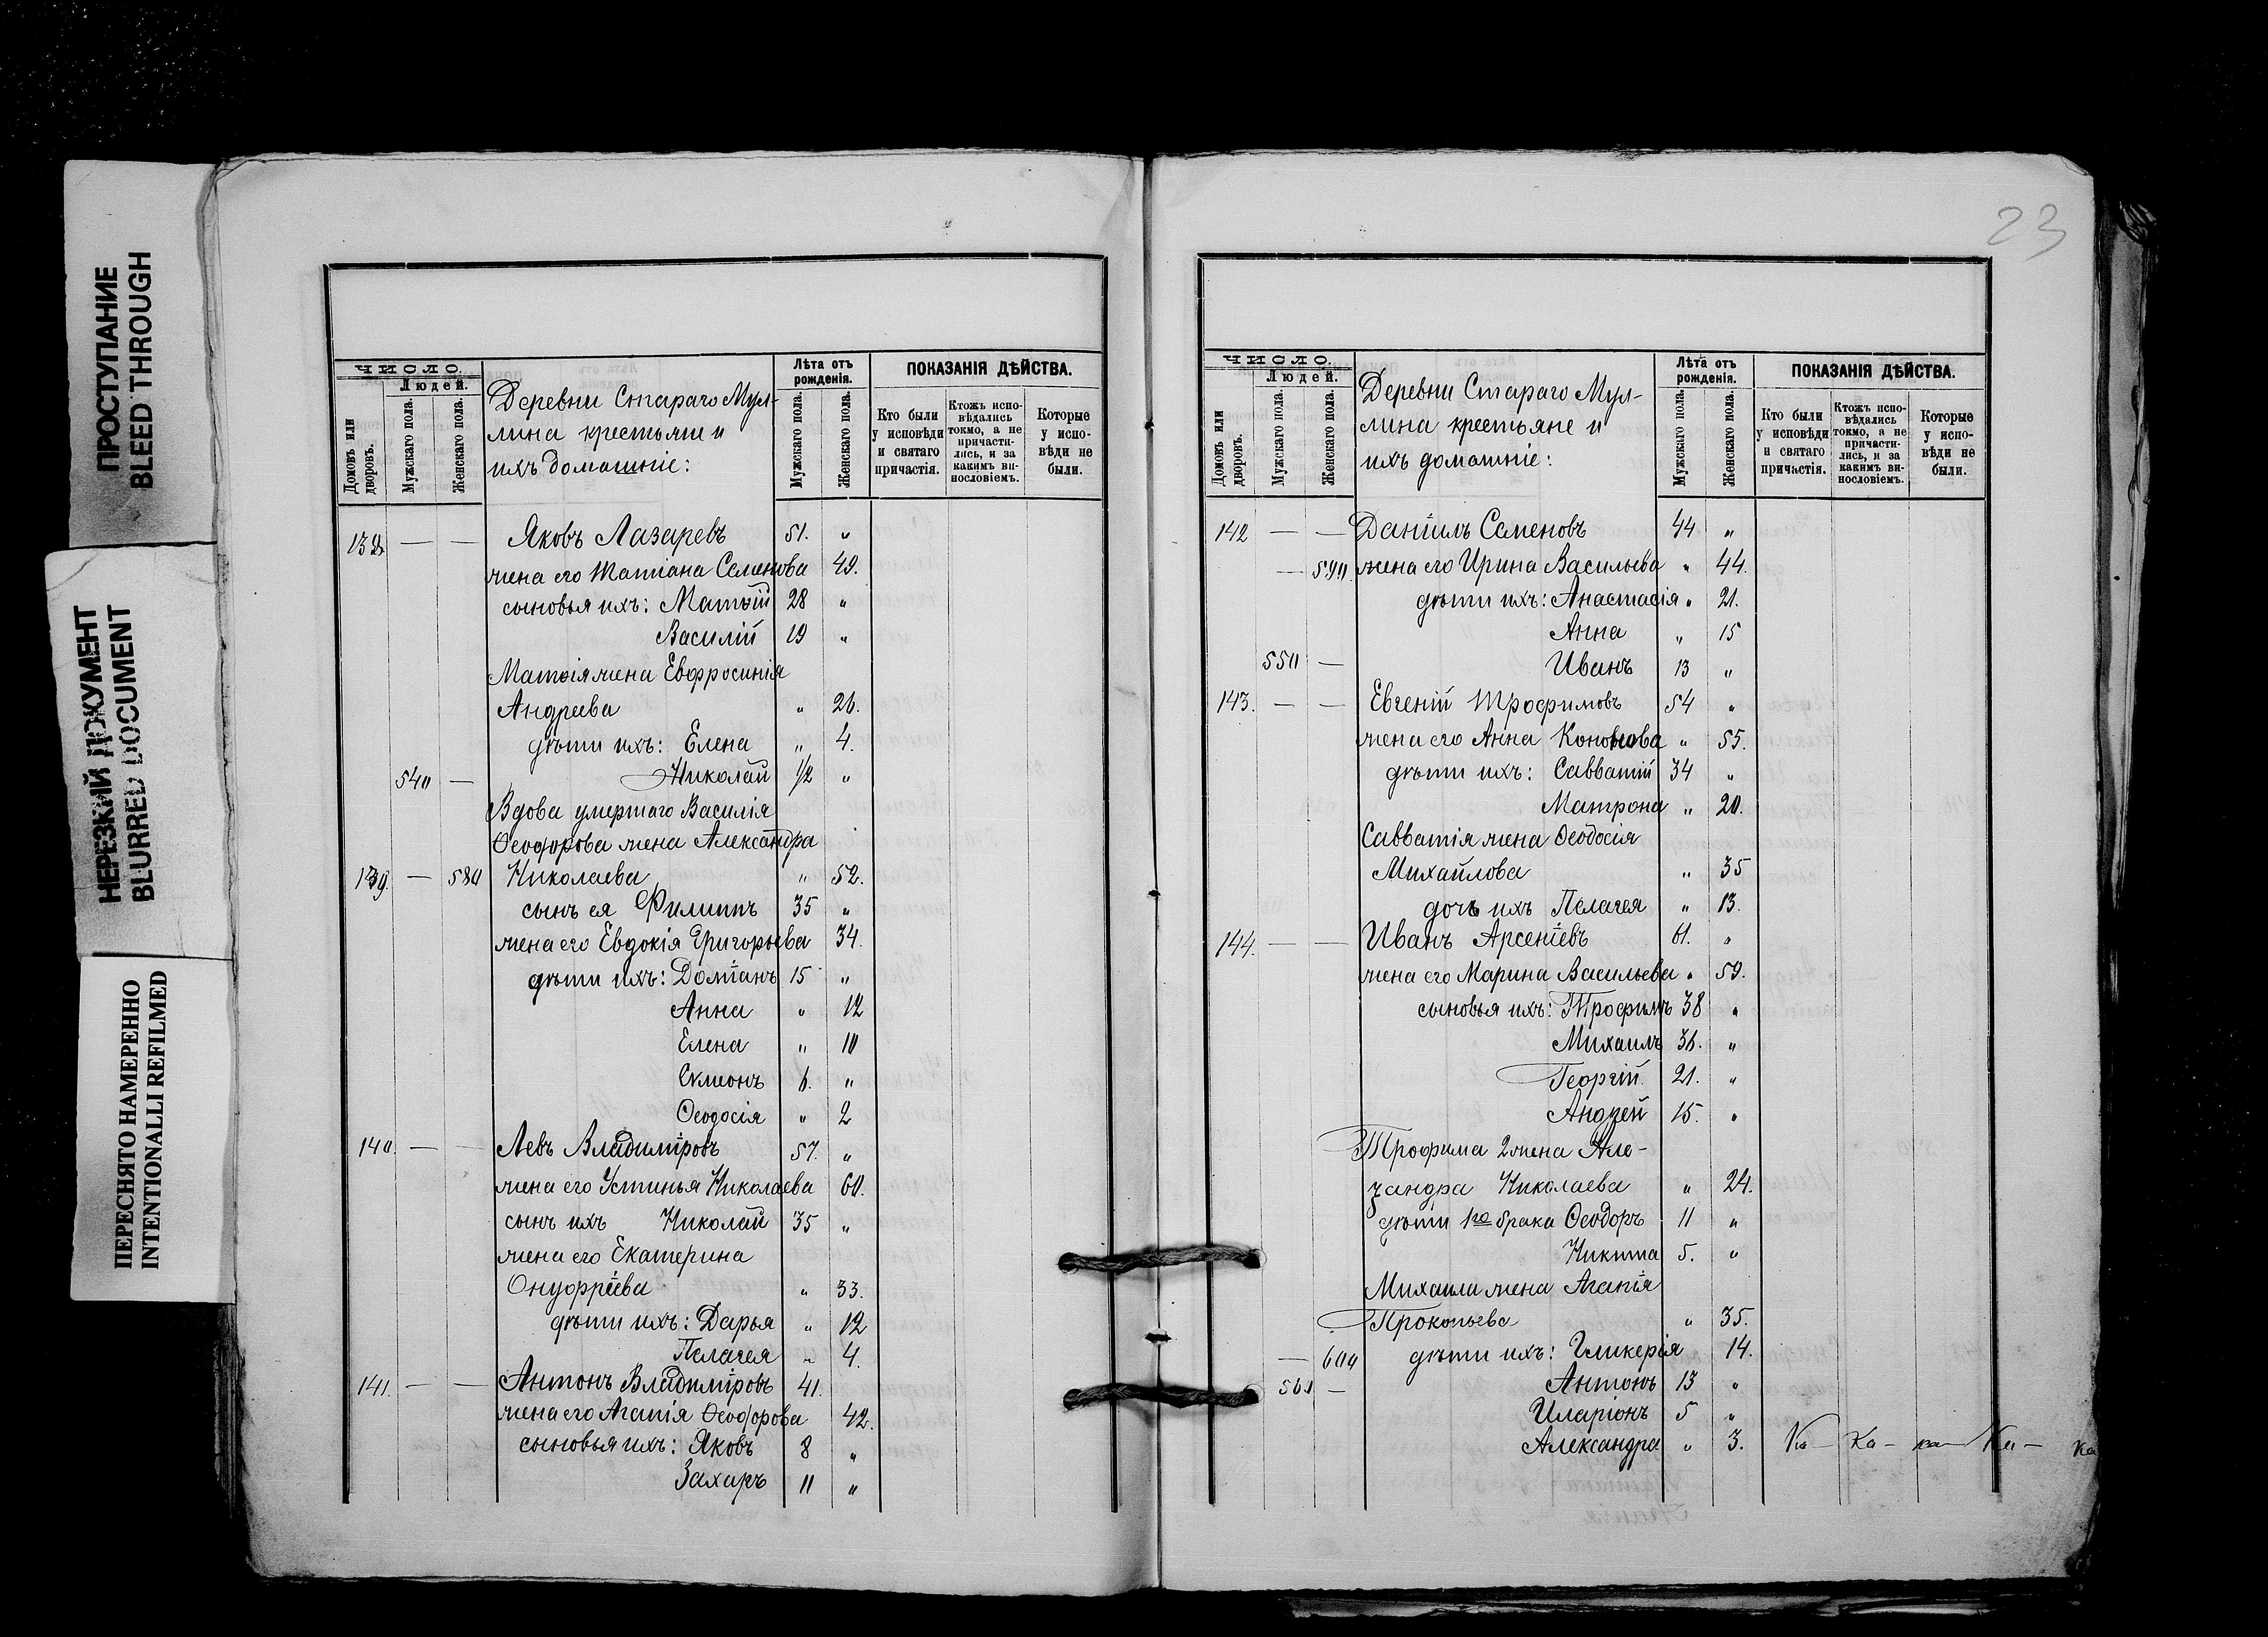 ПРОСТУПАНИЕ
BLEED THROUGH
НЕРЕЗКИЙ ДОКУМЕНТ
BLURRED DOCUMENT
ПЕРЕСНЯТО НАМЕРЕННО
INTENTIONALLI REFILMED
ЧИСЛО.
Людей.
Домовъ или дворовъ.
Мужскаго пола.
Женскаго пола.
Деревни Стараго Мул-
лина крестьяне и
ихъ домашніе:
Лѣта отъ рожденія.
Мужскаго пола.
Женскаго пола.
ПОКАЗАНІЯ ДѢЙСТВА.
Кто были у исповѣди и святаго причастія.
Ктожъ испо-вѣдались токмо, а не причасти-лись, и за какимъ ви-нословіемъ.
Которые у испо-вѣди не были.
138 — — Яковъ Лазаревъ 51. "
жена его Татіана Семенова 49.
сыновья ихъ: Матѳій 28 "
Василій 19 "
Матѳія жена Евфросинія
Андреева " 26.
дѣти ихъ: Елена " 4.
540 — Николай 1/2 "
Вдова умершаго Василія
Ѳеодорова жена Александра
139. — 580 Николаева " 52.
сынъ ея Филиппъ 35 "
жена его Евдокія Григорьева 34.
дѣти ихъ: Доміанъ 15 "
Анна " 12
Елена " 10
Симеонъ 6. "
Ѳеодосія " 2
140. — — Левъ Владиміровъ 57. "
жена его Устинья Николаева 60.
сынъ ихъ Николай 35 "
жена его Екатерина
Онуфріева " 33.
дѣти ихъ: Дарья " 12
Пелагея " 4.
141. — — Антонъ Владиміровъ 41.
жена его Агапія Ѳеодорова 42.
сыновья ихъ: Яковъ 8 "
Захаръ 11 "
23
ЧИСЛО.
Людей.
Домовъ или дворовъ.
Мужскаго пола.
Женскаго пола.
Деревни Стараго Мул-
лина крестьяне и
ихъ домашніе:
Лѣта отъ рожденія.
Мужскаго пола.
Женскаго пола.
ПОКАЗАНІЯ ДѢЙСТВА.
Кто были у исповѣди и святаго причастія.
Ктожъ испо-вѣдались токмо, а не причасти-лись, и за какимъ ви-нословіемъ.
Которые у испо-вѣди не были.
142 — — Даніилъ Семеновъ 44 "
— 590 жена его Ирина Васильева " 44.
дѣти ихъ: Анастасія " 21.
Анна " 15
550 — Иванъ 13 "
143. — — Евгеній Трофимовъ 54 "
жена его Анна Кононова " 55.
дѣти ихъ: Савватій 34 "
Матрона " 20.
Савватія жена Ѳеодосія
Михайлова " 35
дочь ихъ Пелагея " 13.
144. — — Иванъ Арсеніевъ 61. "
жена его Марина Васильева " 59.
сыновья ихъ: Трофимъ 38 "
Михаилъ 36. "
Георгій 21. "
Андрей 15. "
Трофима 2 жена Але-
ѯандра Николаева " 24.
дѣти 1го брака Ѳеодоръ 11 "
Никита 5. "
Михаила жена Агапія
Прокопьева " 35.
— 600 дѣти ихъ: Гликерія 14.
560 — Антонъ 13 "
Иларіонъ 5 "
Александра " 3. Ка — Ка — ка — Ка — ка